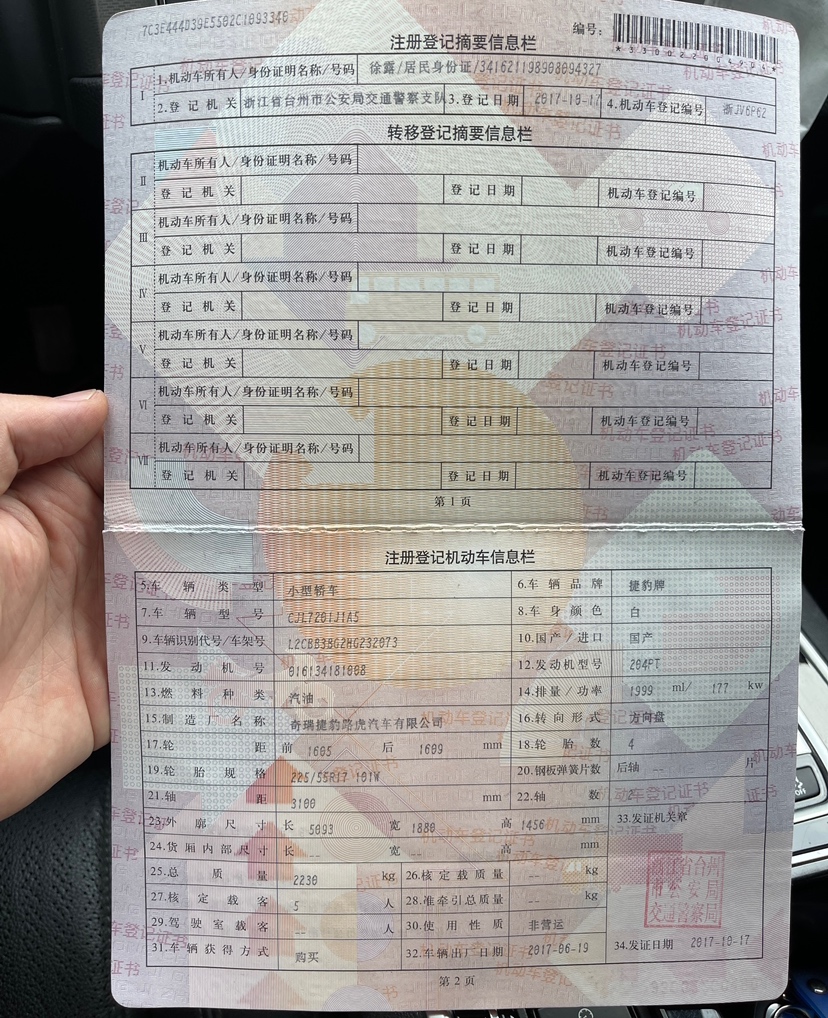 7C3E444D39E5502C1893340
编号:
注册登记摘要信息栏
Ⅰ 1.机动车所有人/身份证明名称/号码 徐露/居民身份证/341621198908094327
2.登记机关 浙江省台州市公安局交通警察支队 3.登记日期 2017-10-17 4.机动车登记编号 浙JV6P62
转移登记摘要信息栏
Ⅱ 机动车所有人/身份证明名称/号码
登记机关 登记日期 机动车登记编号
Ⅲ 机动车所有人/身份证明名称/号码
登记机关 登记日期 机动车登记编号
Ⅳ 机动车所有人/身份证明名称/号码
登记机关 登记日期 机动车登记编号
Ⅴ 机动车所有人/身份证明名称/号码
登记机关 登记日期 机动车登记编号
Ⅵ 机动车所有人/身份证明名称/号码
登记机关 登记日期 机动车登记编号
Ⅶ 机动车所有人/身份证明名称/号码
登记机关 登记日期 机动车登记编号
第1页
注册登记机动车信息栏
5.车辆类型 小型轿车 6.车辆品牌 捷豹牌
7.车辆型号 CJL7201J1A5 8.车身颜色 白
9.车辆识别代号/车架号 L2CBB3BG2HG232073 10.国产/进口 国产
11.发动机号 016134181008 12.发动机型号 204PT
13.燃料种类 汽油 14.排量/功率 1999 ml/ 177 kw
15.制造厂名称 奇瑞捷豹路虎汽车有限公司 16.转向形式 方向盘
17.轮距 前 1605 后 1609 mm 18.轮胎数 4
19.轮胎规格 225/55R17 101W 20.钢板弹簧片数 后轴 -- 片
21.轴距 3100 mm 22.轴数 2
23.外廓尺寸 长 5093 宽 1880 高 1456 mm 33.发证机关章
24.货厢内部尺寸 长 -- 宽 -- 高 -- mm
25.总质量 2230 kg 26.核定载质量 -- kg
27.核定载客 5 人 28.准牵引总质量 -- kg
浙江省台州市公安局交通警察局
29.驾驶室载客 -- 人 30.使用性质 非营运
31.车辆获得方式 购买 32.车辆出厂日期 2017-06-19 34.发证日期 2017-10-17
第2页